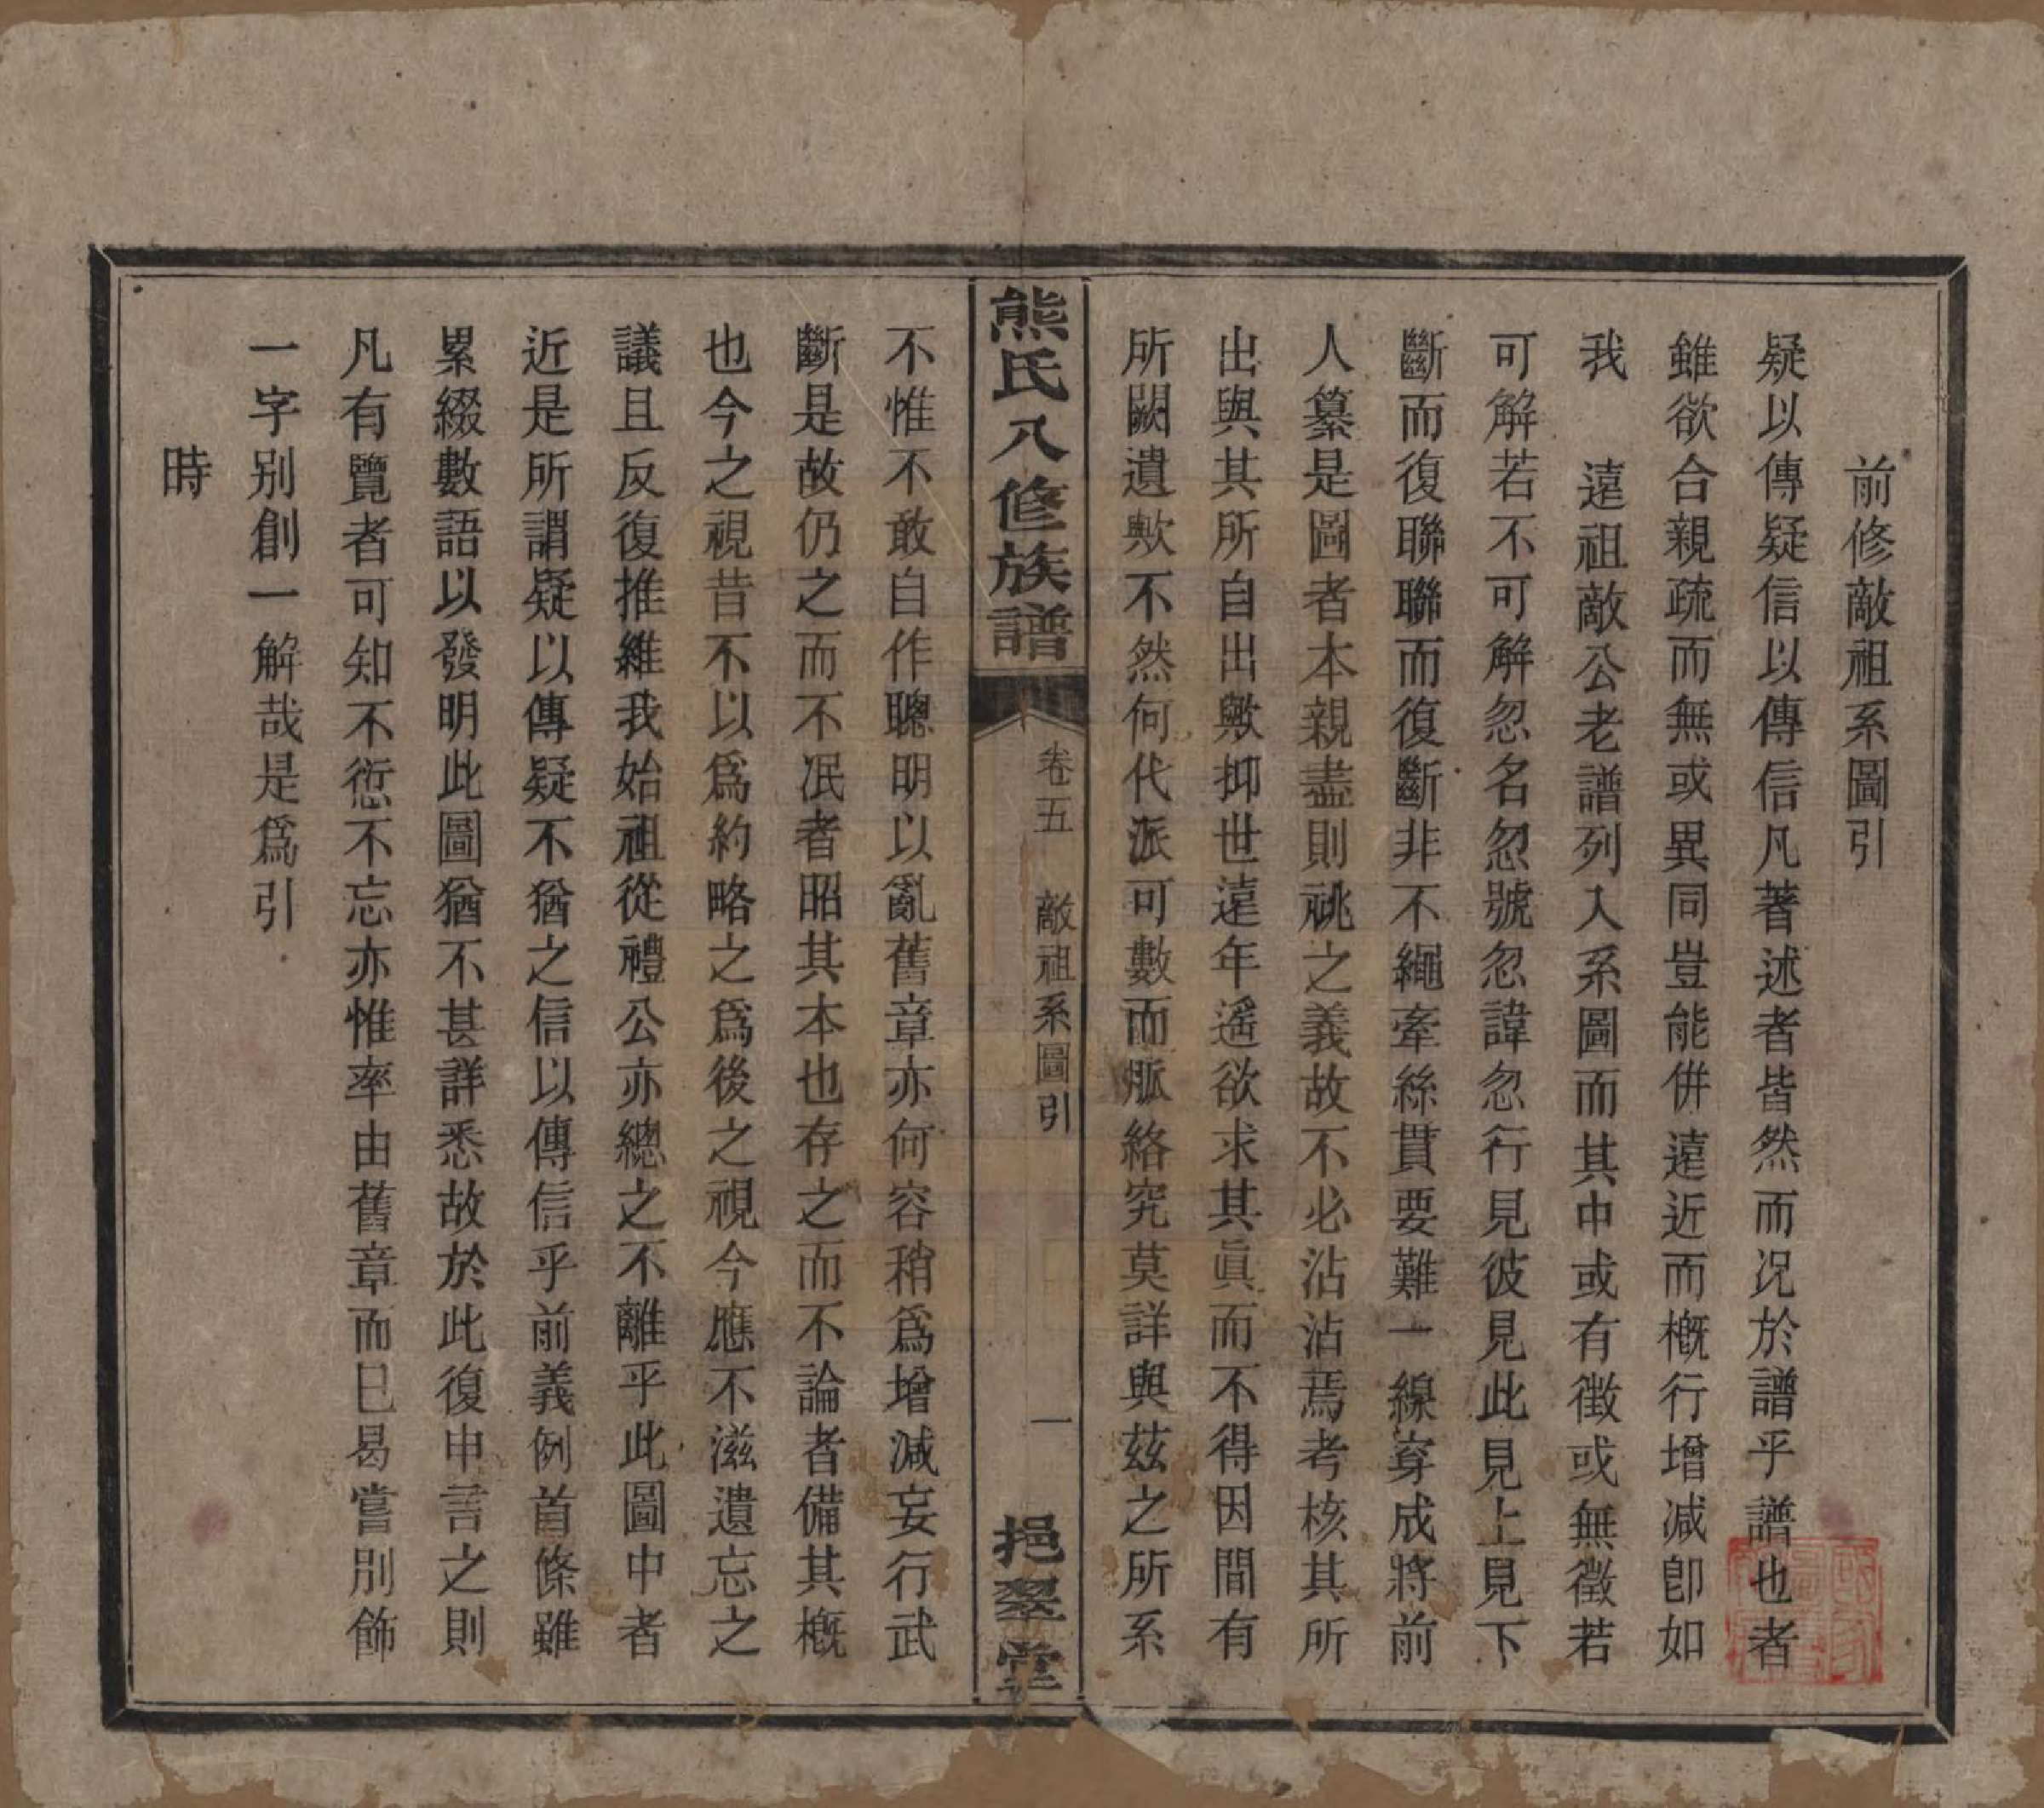 前修敵祖系圖引
疑以傳疑信以傳信凡著述者皆然而況於譜乎譜也者
雖欲合親疏而無或異同豈能併遠近而概行增減卽如
我　遠祖敵公老譜列入系圖而其中或有徵或無徵若
可解若不可解忽名忽號忽諱忽行見彼見此見上見下
斷而復聯聯而復斷非不繩牽絲貫要難一線穿成將前
人纂是圖者本親盡則祧之義故不必沾沾焉考核其所
出與其所自出歟抑世遠年遙欲求其眞而不得因間有
所闕遺歟不然何代派可數而脈絡究莫詳與茲之所系
熊氏八修族譜
卷五　敵祖系圖引
一
挹翠堂
不惟不敢自作聰明以亂舊章亦何容稍爲增減妄行武
斷是故仍之而不泯者昭其本也存之而不論者備其概
也今之視昔不以爲約略之爲後之視今應不滋遺忘之
議且反復推維我始祖從禮公亦總之不離乎此圖中者
近是所謂疑以傳疑不猶之信以傳信乎前義例首條雖
累綴數語以發明此圖猶不甚詳悉故於此復申言之則
凡有覽者可知不愆不忘亦惟率由舊章而已曷嘗別飾
一字別創一解哉是爲引
時